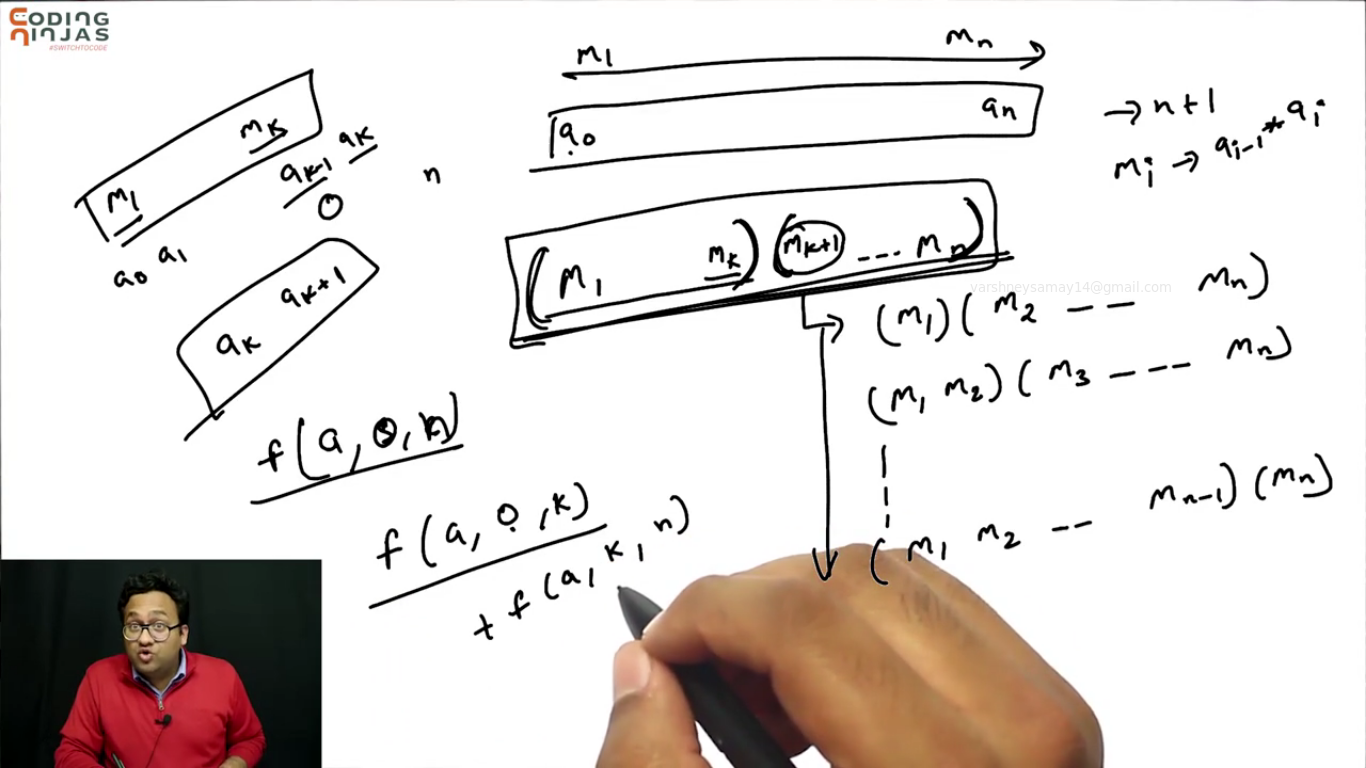 CODING
NINJAS
#SWITCHTOCODE
m1 mn
a0 an
→ n+1
mi → ai-1 * ai
m1 mk
ak-1 ak
0
a0 a1
n
(m1 mk) (mk+1 --- mn)
ak ak+1
varshneysamay14@gmail.com
(m1) (m2 -- mn)
(m1 m2) (m3 --- mn)
(m1 m2 -- mn-1) (mn)
f(a, 0, n)
f(a, 0, k)
+ f(a, k, n)